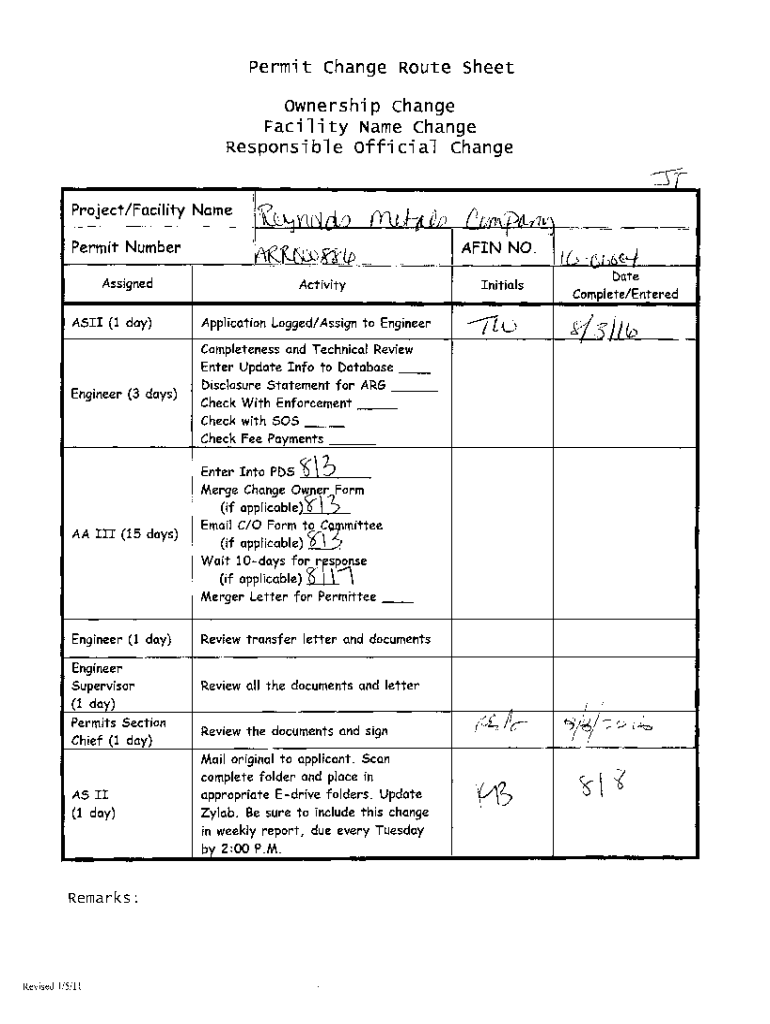 Permit Change Route Sheet
Ownership Change
Facility Name Change
Responsible Official Change
JT
Project/Facility Name Reynolds Metals Company
Permit Number AFIN NO.
Assigned Activity Initials Date Complete/Entered
ASII (1 day) Application Logged/Assign to Engineer TW 8/3/16
Engineer (3 days)
Completeness and Technical Review
Enter Update Info to Database ____
Disclosure Statement for ARG ______
Check With Enforcement _____
Check with SOS __ __
Check Fee Payments ______
AA III (15 days)
Enter Into PDS 8/3
Merge Change Owner Form
(if applicable) 8/3
Email C/O Form to Committee
(if applicable) 8/3
Wait 10-days for response
(if applicable) 8/17
Merger Letter for Permittee ____
Engineer (1 day) Review transfer letter and documents
Engineer
Supervisor
(1 day)
Review all the documents and letter
Permits Section
Chief (1 day)
Review the documents and sign
AS II
(1 day)
Mail original to applicant. Scan
complete folder and place in
appropriate E-drive folders. Update
Zylab. Be sure to include this change
in weekly report, due every Tuesday
by 2:00 P.M.
8/8
Remarks:
Revised 1/5/11